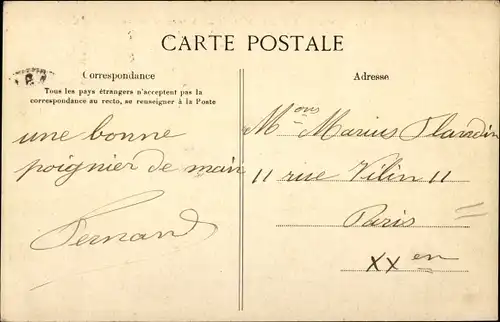 CARTE POSTALE
Correspondance
Tous les pays étrangers n'acceptent pas la
correspondance au recto, se renseigner à la Poste
Adresse
une bonne
poignier de main
Fernand
Mons Marius Flandin
11 rue Vilin 11
Paris
XXen